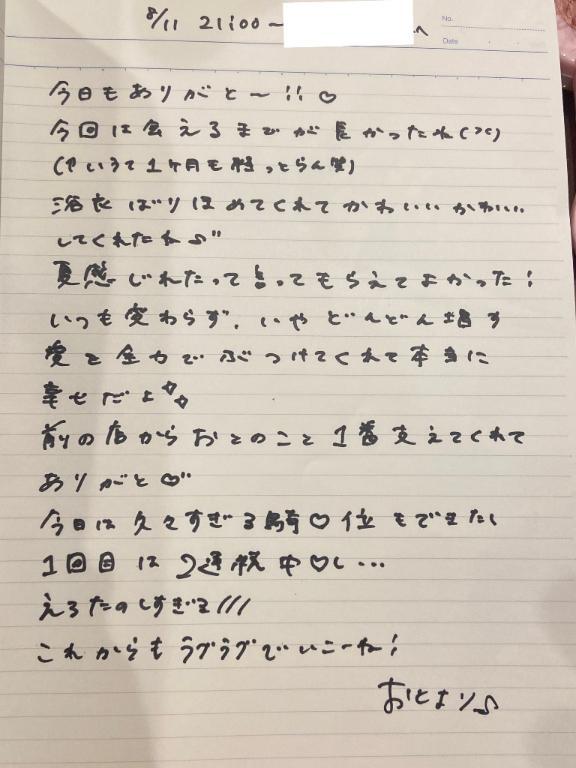 8/11 21:00〜 へ
No.
Date
今日もありがと〜!! ♡
今回は会えるまでが長かったね(><)
(や いうて1ヶ月も経っとらん笑)
浴衣ばりほめてくれてかわいいかわいい
してくれたね♪"
夏感じれたって言ってもらえてよかった!
いつも変わらず、いやどんどん増す
愛を全力でぶつけてくれて本当に
幸せだよ✧✧
前の店からおとのこと1番支えてくれて
ありがと♡"
今日は久々すぎる騎♡位もできたし
1回目は2連続中♡し...
えろたのしすぎる///
これからもラブラブでいこーね!
おとより♪